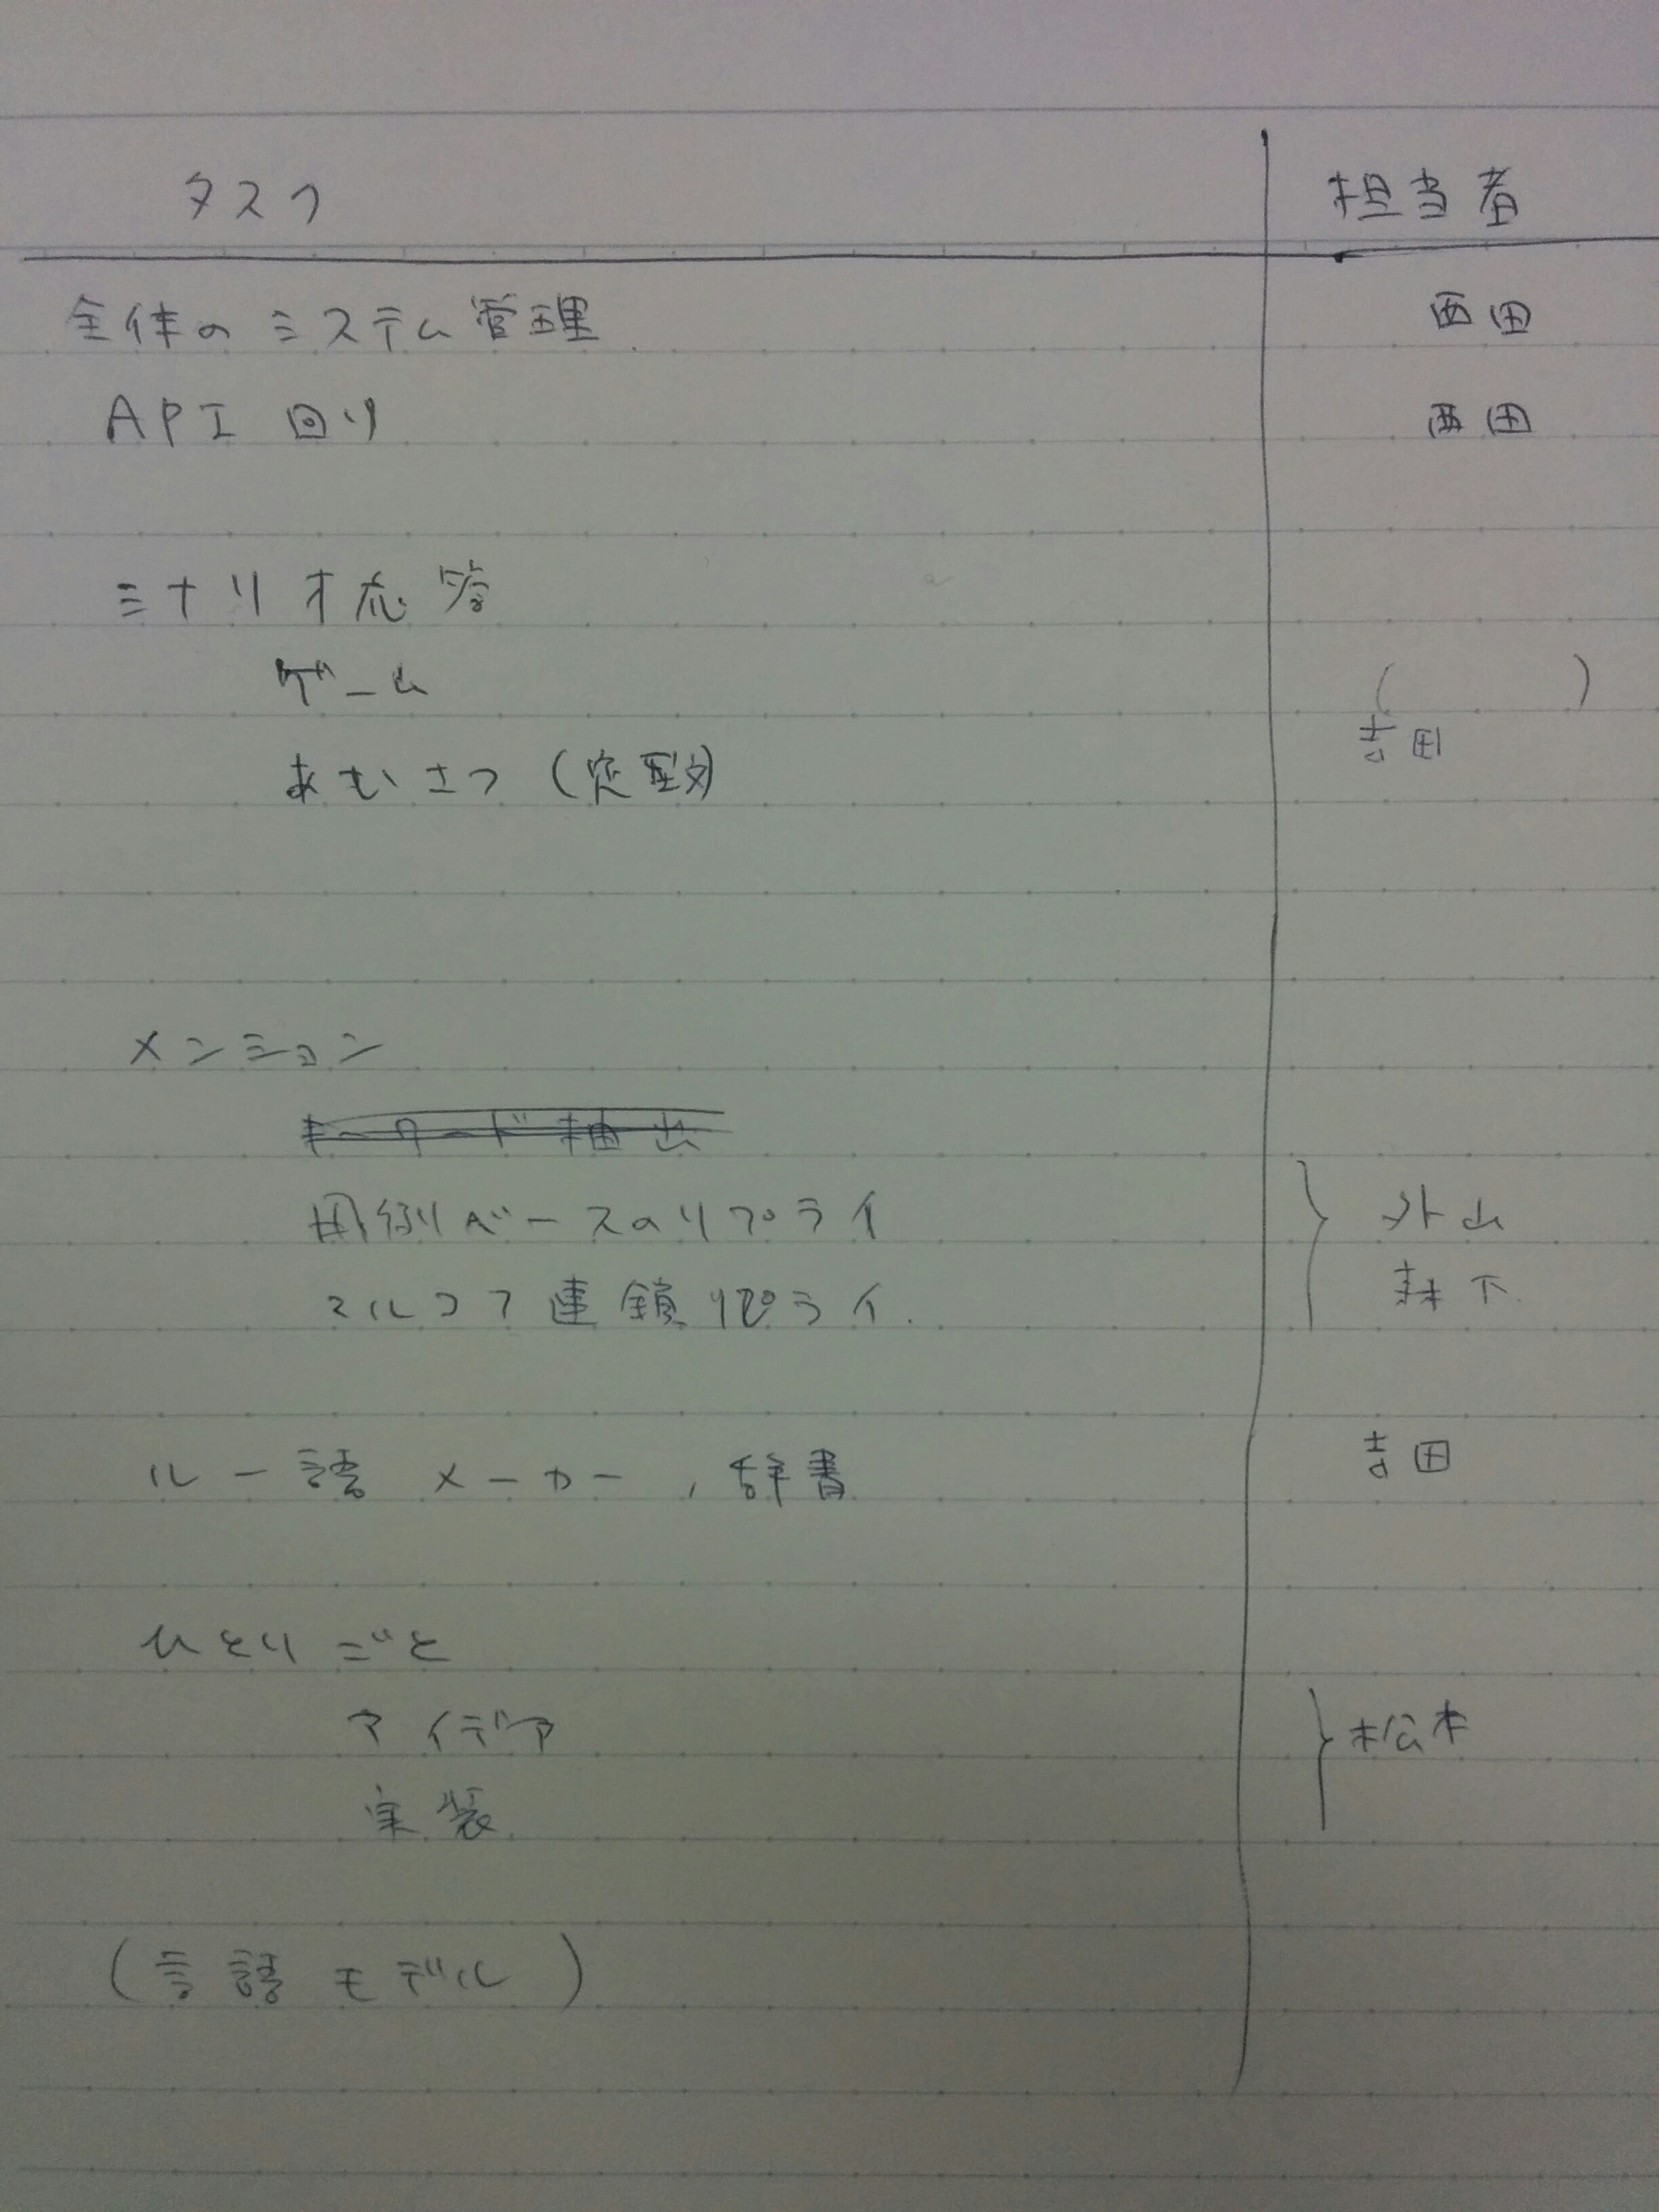 タスク 担当者
全体のシステム管理 西田
API回り 西田
シナリオ応答
ゲーム ( )
あいさつ (定型文) 吉田
メンション
キーワード抽出
用例ベースのリプライ 外山
マルコフ連鎖リプライ.
ルー語メーカー, 辞書 吉田
ひとりごと
アイデア 松本
実装
(言語モデル)